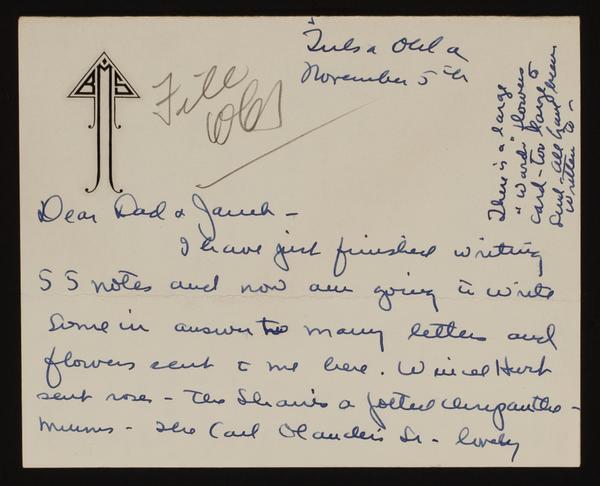 Tulsa Okla
November 5th
BMS
File
Dear Dad & Janet -
I have just finished writing
55 notes and now am going to write
some in answer to many letters and
flowers sent to me here. Hurst
sent roses - the a potted chrysanthe-
mums - the Carl Sr - lovely
There is a large
"Ward" flowers
card - too large to
send - all have been
written to -